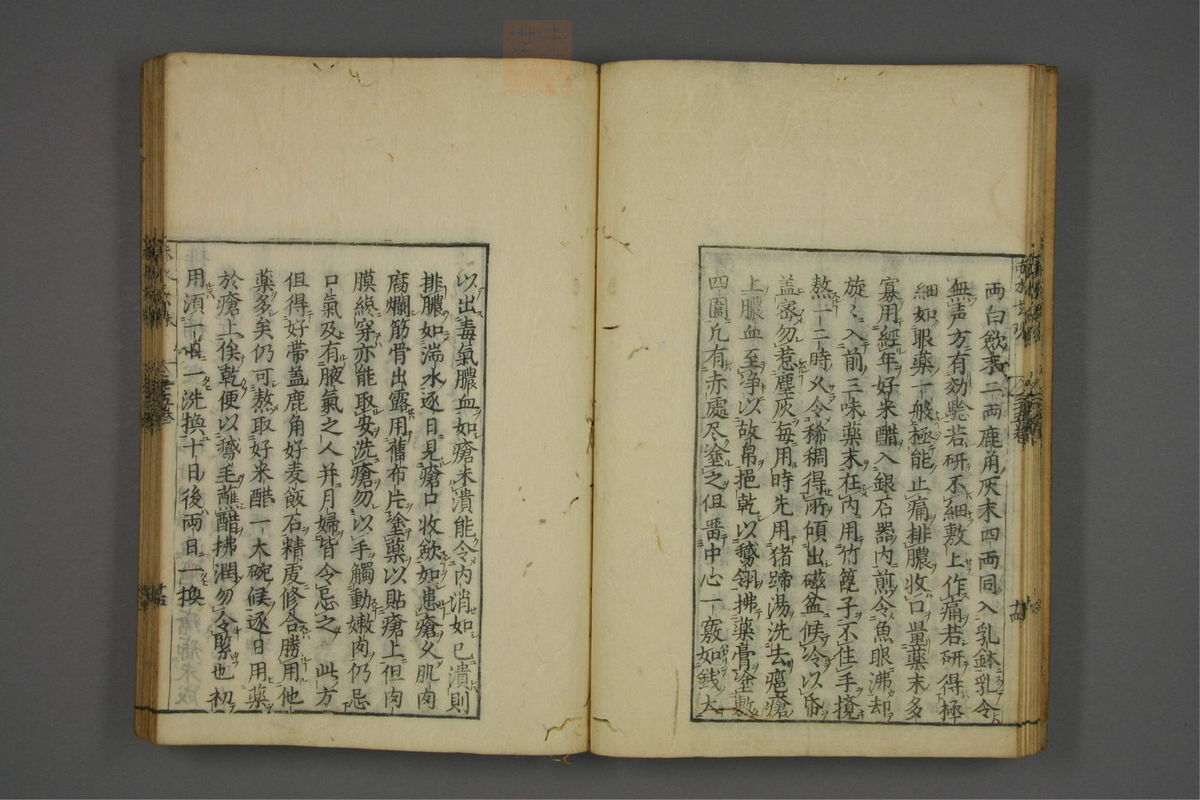 両白斂末二両鹿角灰末四両同入乳鉢乳令
無声方有効験若研不細敷上作痛若研得極
細如眼薬一般極能止痛排膿收口量薬末多
寡用經年好米醋入銀石器内煎令魚眼沸却
旋〻入前三味薬末在内用竹篦子不住手攪
熬一二時久令稀稠得所傾出磁盆候冷以㫘
盖密勿惹塵灰毎用時先用猪蹄湯洗去瘡
上膿血至浄以故帛挹乾以鵝翎拂薬膏塗敷
四圍凢有赤處尽塗之但畱中心一竅如銭大
以出毒氣膿血如瘡未潰能令内消如已潰則
排膿如湍水逐日見瘡口收斂如患瘡久肌肉
腐爛筋骨出露用舊布片塗薬以貼瘡上但肉
膜縁穿亦能取安洗瘡勿以手觸動嫩肉仍忌
口氣及有腋氣之人并月婦皆令忌之 此方
但得好帯盖鹿角好麦飯石精虔修合勝用他
薬多矣仍可熬取好米醋一大碗候逐日用薬
於瘡上俟乾便以鵝毛蘸醋拂潤勿令緊也初
用湏一日一洗換十日後両日一換